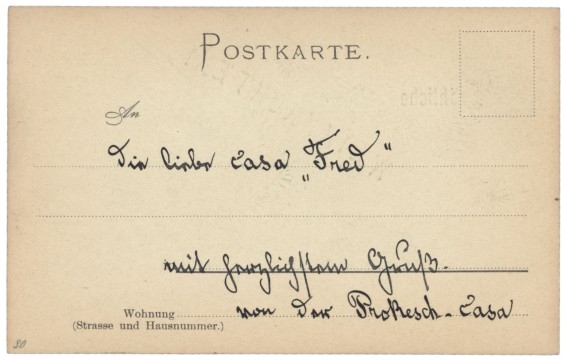 POSTKARTE.
An
Die liebe Casa „Fred“
mit herzlichstem Gruß.
Wohnung von der Prokesch-Casa
(Strasse und Hausnummer.)
30